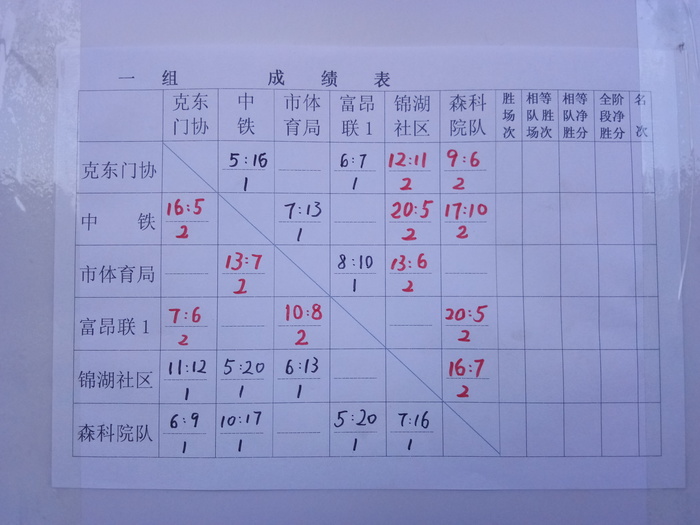 一 组 成 绩 表
克东门协 中铁 市体育局 富昂联1 锦湖社区 森科院队 胜场次 相等队胜场次 相等队净胜分 全阶段净胜分 名次
克东门协 5:16 6:7 12:11 9:6
1 1 2 2
中 铁 16:5 7:13 20:5 17:10
2 1 2 2
市体育局 13:7 8:10 13:6
2 1 2
富昂联1 7:6 10:8 20:5
2 2 2
锦湖社区 11:12 5:20 6:13 16:7
1 1 1 2
森科院队 6:9 10:17 5:20 7:16
1 1 1 1